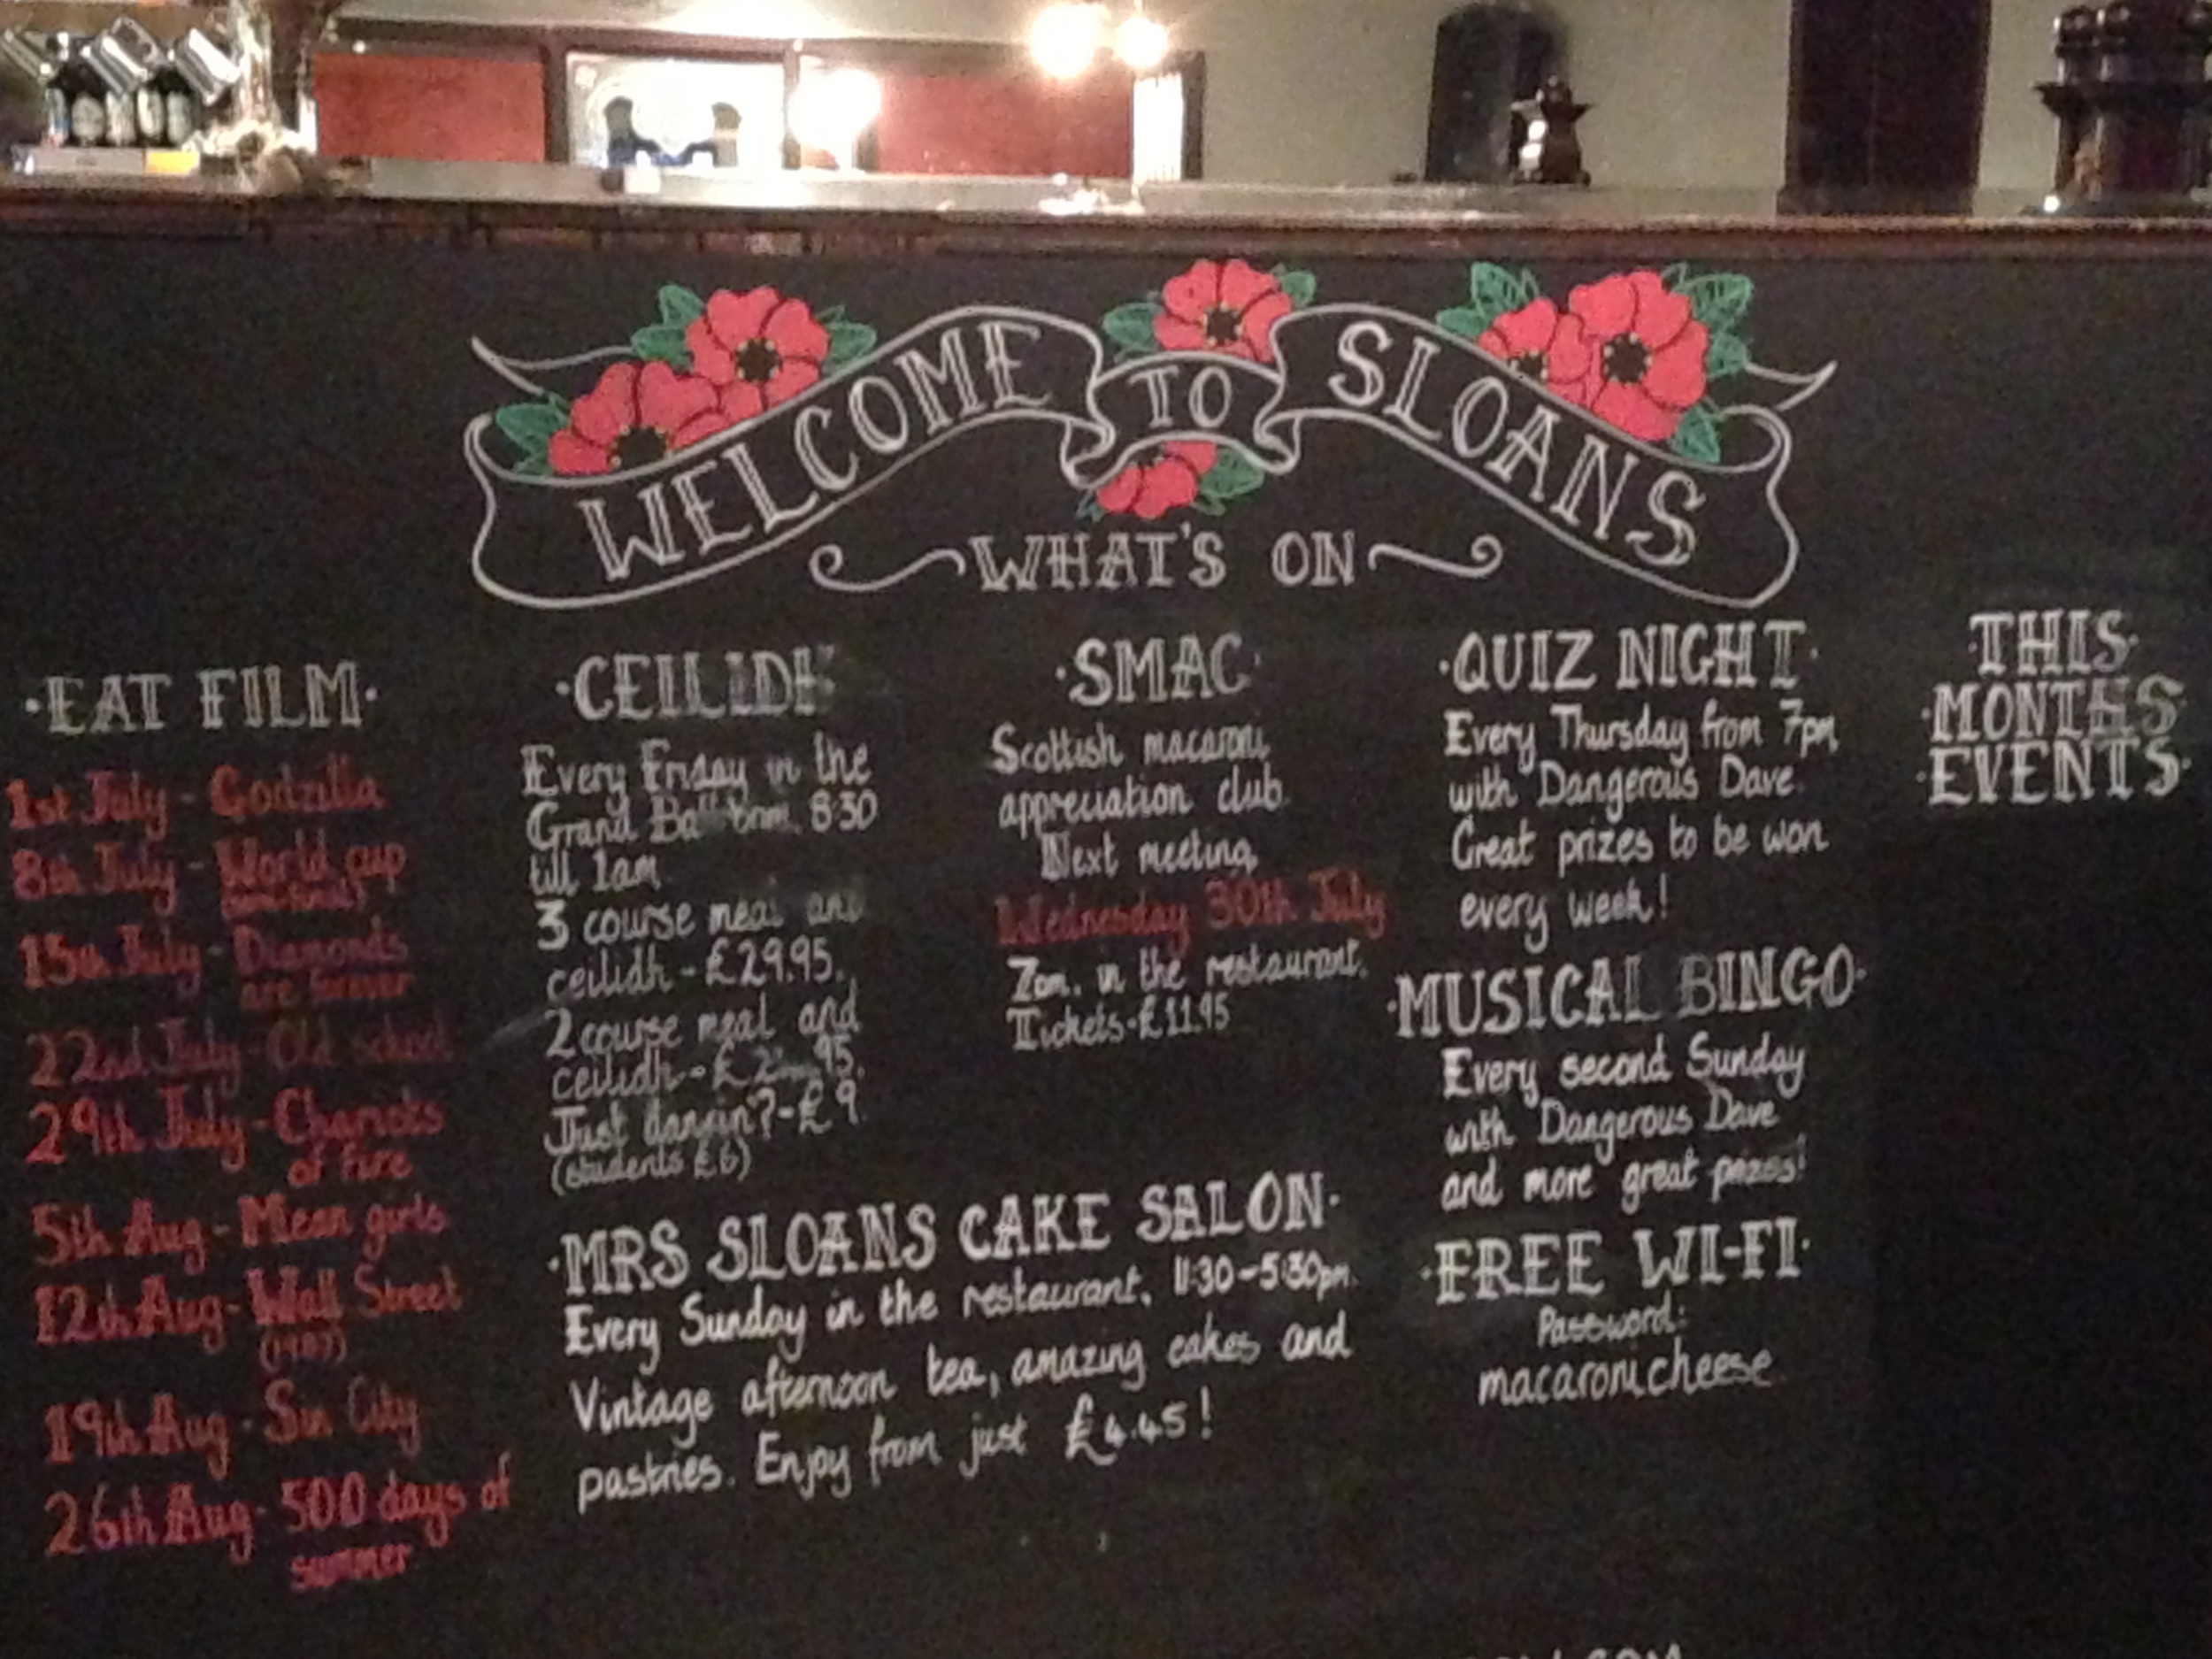 WELCOME TO SLOANS
WHAT'S ON
·EAT FILM·
1st July - Godzilla
8th July - World cup
15th July - Diamonds
are forever
22nd July - Old school
29th July - Chariots
of Fire
5th Aug - Mean girls
12th Aug - Wall Street
(1987)
19th Aug - Sin City
26th Aug - 500 days of
summer
·CEILIDH
Every Friday in the
Grand Ballroom. 8:30
till 1am
3 course meal and
ceilidh - £29.95.
2 course meal and
ceilidh -
Just dancin'? - £9.
(students £6)
·SMAC·
Scottish macaroni
appreciation club.
Next meeting,
Wednesday 30th July
7pm. in the restaurant.
Tickets - £11.95
·MRS SLOANS CAKE SALON·
Every Sunday in the restaurant, 11:30-5:30pm.
Vintage afternoon tea, amazing cakes and
pastries. Enjoy from just £4.45!
·QUIZ NIGHT·
Every Thursday from 7pm
with Dangerous Dave.
Great prizes to be won
every week!
·MUSICAL BINGO·
Every second Sunday
with Dangerous Dave
and more great prizes!
·FREE WI-FI·
Password:
macaronicheese
·THIS·
·MONTHS
·EVENTS·